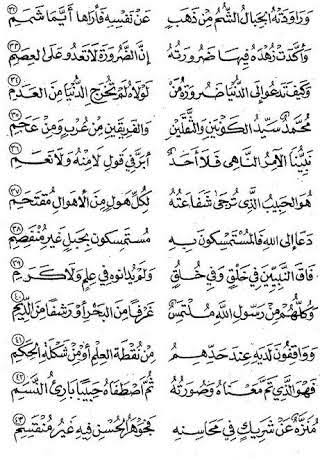 وَرَاوَدَتْهُ الْجِبَالُ الشُّمُّ مِنْ ذَهَبٍ عَنْ نَفْسِهِ فَأَرَاهَا أَيَّمَا شَمَمِ ٣٢
وَأَكَّدَتْ زُهْدَهُ فِيهَا ضَرُورَتُهُ إِنَّ الضَّرُورَةَ لَا تَعْدُو عَلَى الْعِصَمِ ٣٣
وَكَيْفَ تَدْعُو إِلَى الدُّنْيَا ضَرُورَةُ مَنْ لَوْلَاهُ لَمْ تُخْرَجِ الدُّنْيَا مِنَ الْعَدَمِ ٣٤
مُحَمَّدٌ سَيِّدُ الْكَوْنَيْنِ وَالثَّقَلَيْنِ وَالْفَرِيقَيْنِ مِنْ عُرْبٍ وَمِنْ عَجَمِ ٣٥
نَبِيُّنَا الْآمِرُ النَّاهِي فَلَا أَحَدٌ أَبَرَّ فِي قَوْلِ لَا مِنْهُ وَلَا نَعَمِ ٣٦
هُوَ الْحَبِيبُ الَّذِي تُرْجَى شَفَاعَتُهُ لِكُلِّ هَوْلٍ مِنَ الْأَهْوَالِ مُقْتَحَمِ ٣٧
دَعَا إِلَى اللهِ فَالْمُسْتَمْسِكُونَ بِهِ مُسْتَمْسِكُونَ بِحَبْلٍ غَيْرِ مُنْفَصِمِ ٣٨
فَاقَ النَّبِيِّينَ فِي خَلْقٍ وَفِي خُلُقٍ وَلَمْ يُدَانُوهُ فِي عِلْمٍ وَلَا كَرَمِ ٣٩
وَكُلُّهُمْ مِنْ رَسُولِ اللهِ مُلْتَمِسٌ غَرْفًا مِنَ الْبَحْرِ أَوْ رَشْفًا مِنَ الدِّيَمِ ٤٠
وَوَاقِفُونَ لَدَيْهِ عِنْدَ حَدِّهِمِ مِنْ نُقْطَةِ الْعِلْمِ أَوْ مِنْ شَكْلَةِ الْحِكَمِ ٤١
فَهْوَ الَّذِي تَمَّ مَعْنَاهُ وَصُورَتُهُ ثُمَّ اصْطَفَاهُ حَبِيبًا بَارِئُ النَّسَمِ ٤٢
مُنَزَّهٌ عَنْ شَرِيكٍ فِي مَحَاسِنِهِ فَجَوْهَرُ الْحُسْنِ فِيهِ غَيْرُ مُنْقَسِمِ ٤٣